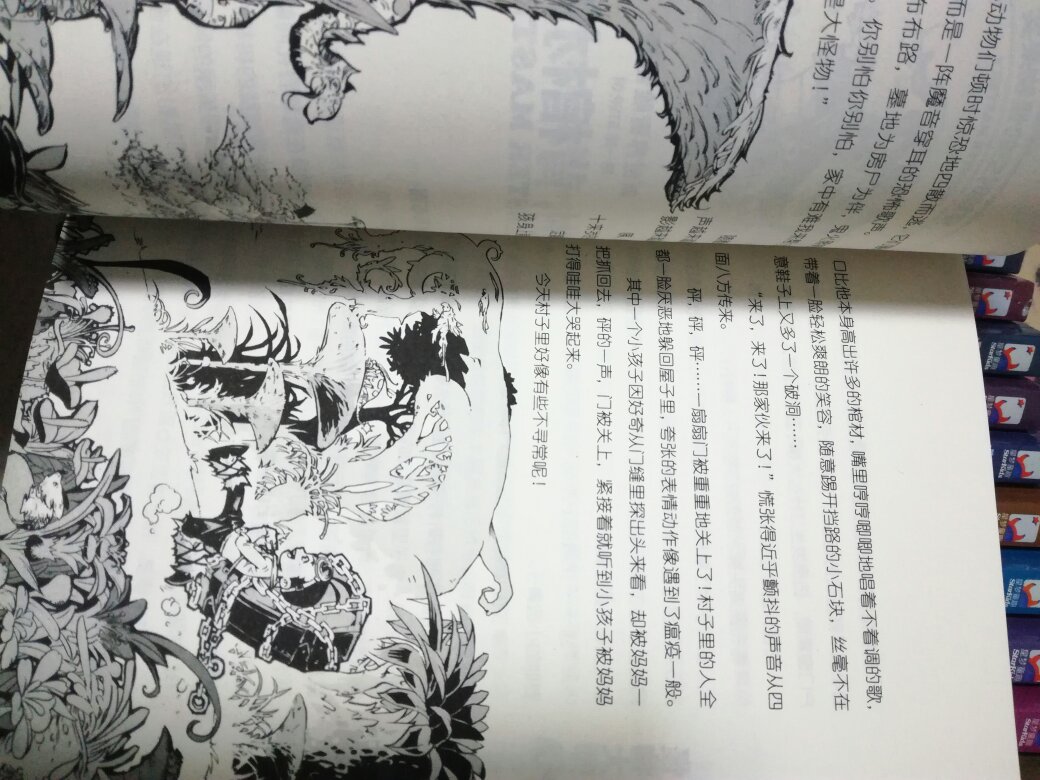 动物们顿时惊恐地四散而逃。
而是一阵魔音穿耳的恐怖歌声。
布布路，墓地为房尸为伴，鬼火
。你别怕你别怕，家中有难我来
是大怪物！”
口比他本身高出许多的棺材，嘴里哼哼唧唧地唱着不着调的歌，
带着一脸轻松爽朗的笑容，随意踢开挡路的小石块，丝毫不在
意鞋子上又多了一个破洞……
“来了，来了！那家伙来了！”慌张得近乎颤抖的声音从四
面八方传来。
砰，砰，砰……一扇扇门被重重地关上了！村子里的人全
都一脸厌恶地躲回屋子里，夸张的表情动作像遇到了瘟疫一般。
其中一个小孩子因好奇从门缝里探出头来看，却被妈妈一
把抓回去，砰的一声，门被关上，紧接着就听到小孩子被妈妈
打得哇哇大哭起来。
今天村子里好像有些不寻常呢！
StarKids
StarKids
StarKids
StarKids
StarKids
StarKids
StarKids